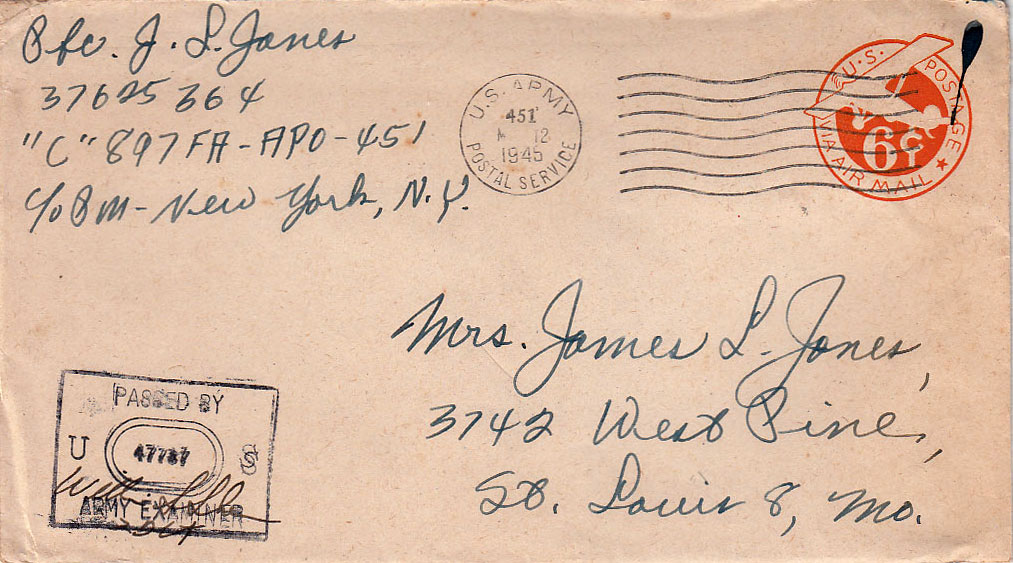 Pfc. J. L. Jones
37625364
"C" 897 FA - APO - 451
c/o PM - New York, N.Y.
U.S. ARMY
451
12
1945
POSTAL SERVICE
U.S. POSTAGE
6¢
VIA AIR MAIL
Mrs. James L. Jones,
3742 West Pine,
St. Louis 8, Mo.
PASSED BY
U 47787 S
ARMY EXAMINER